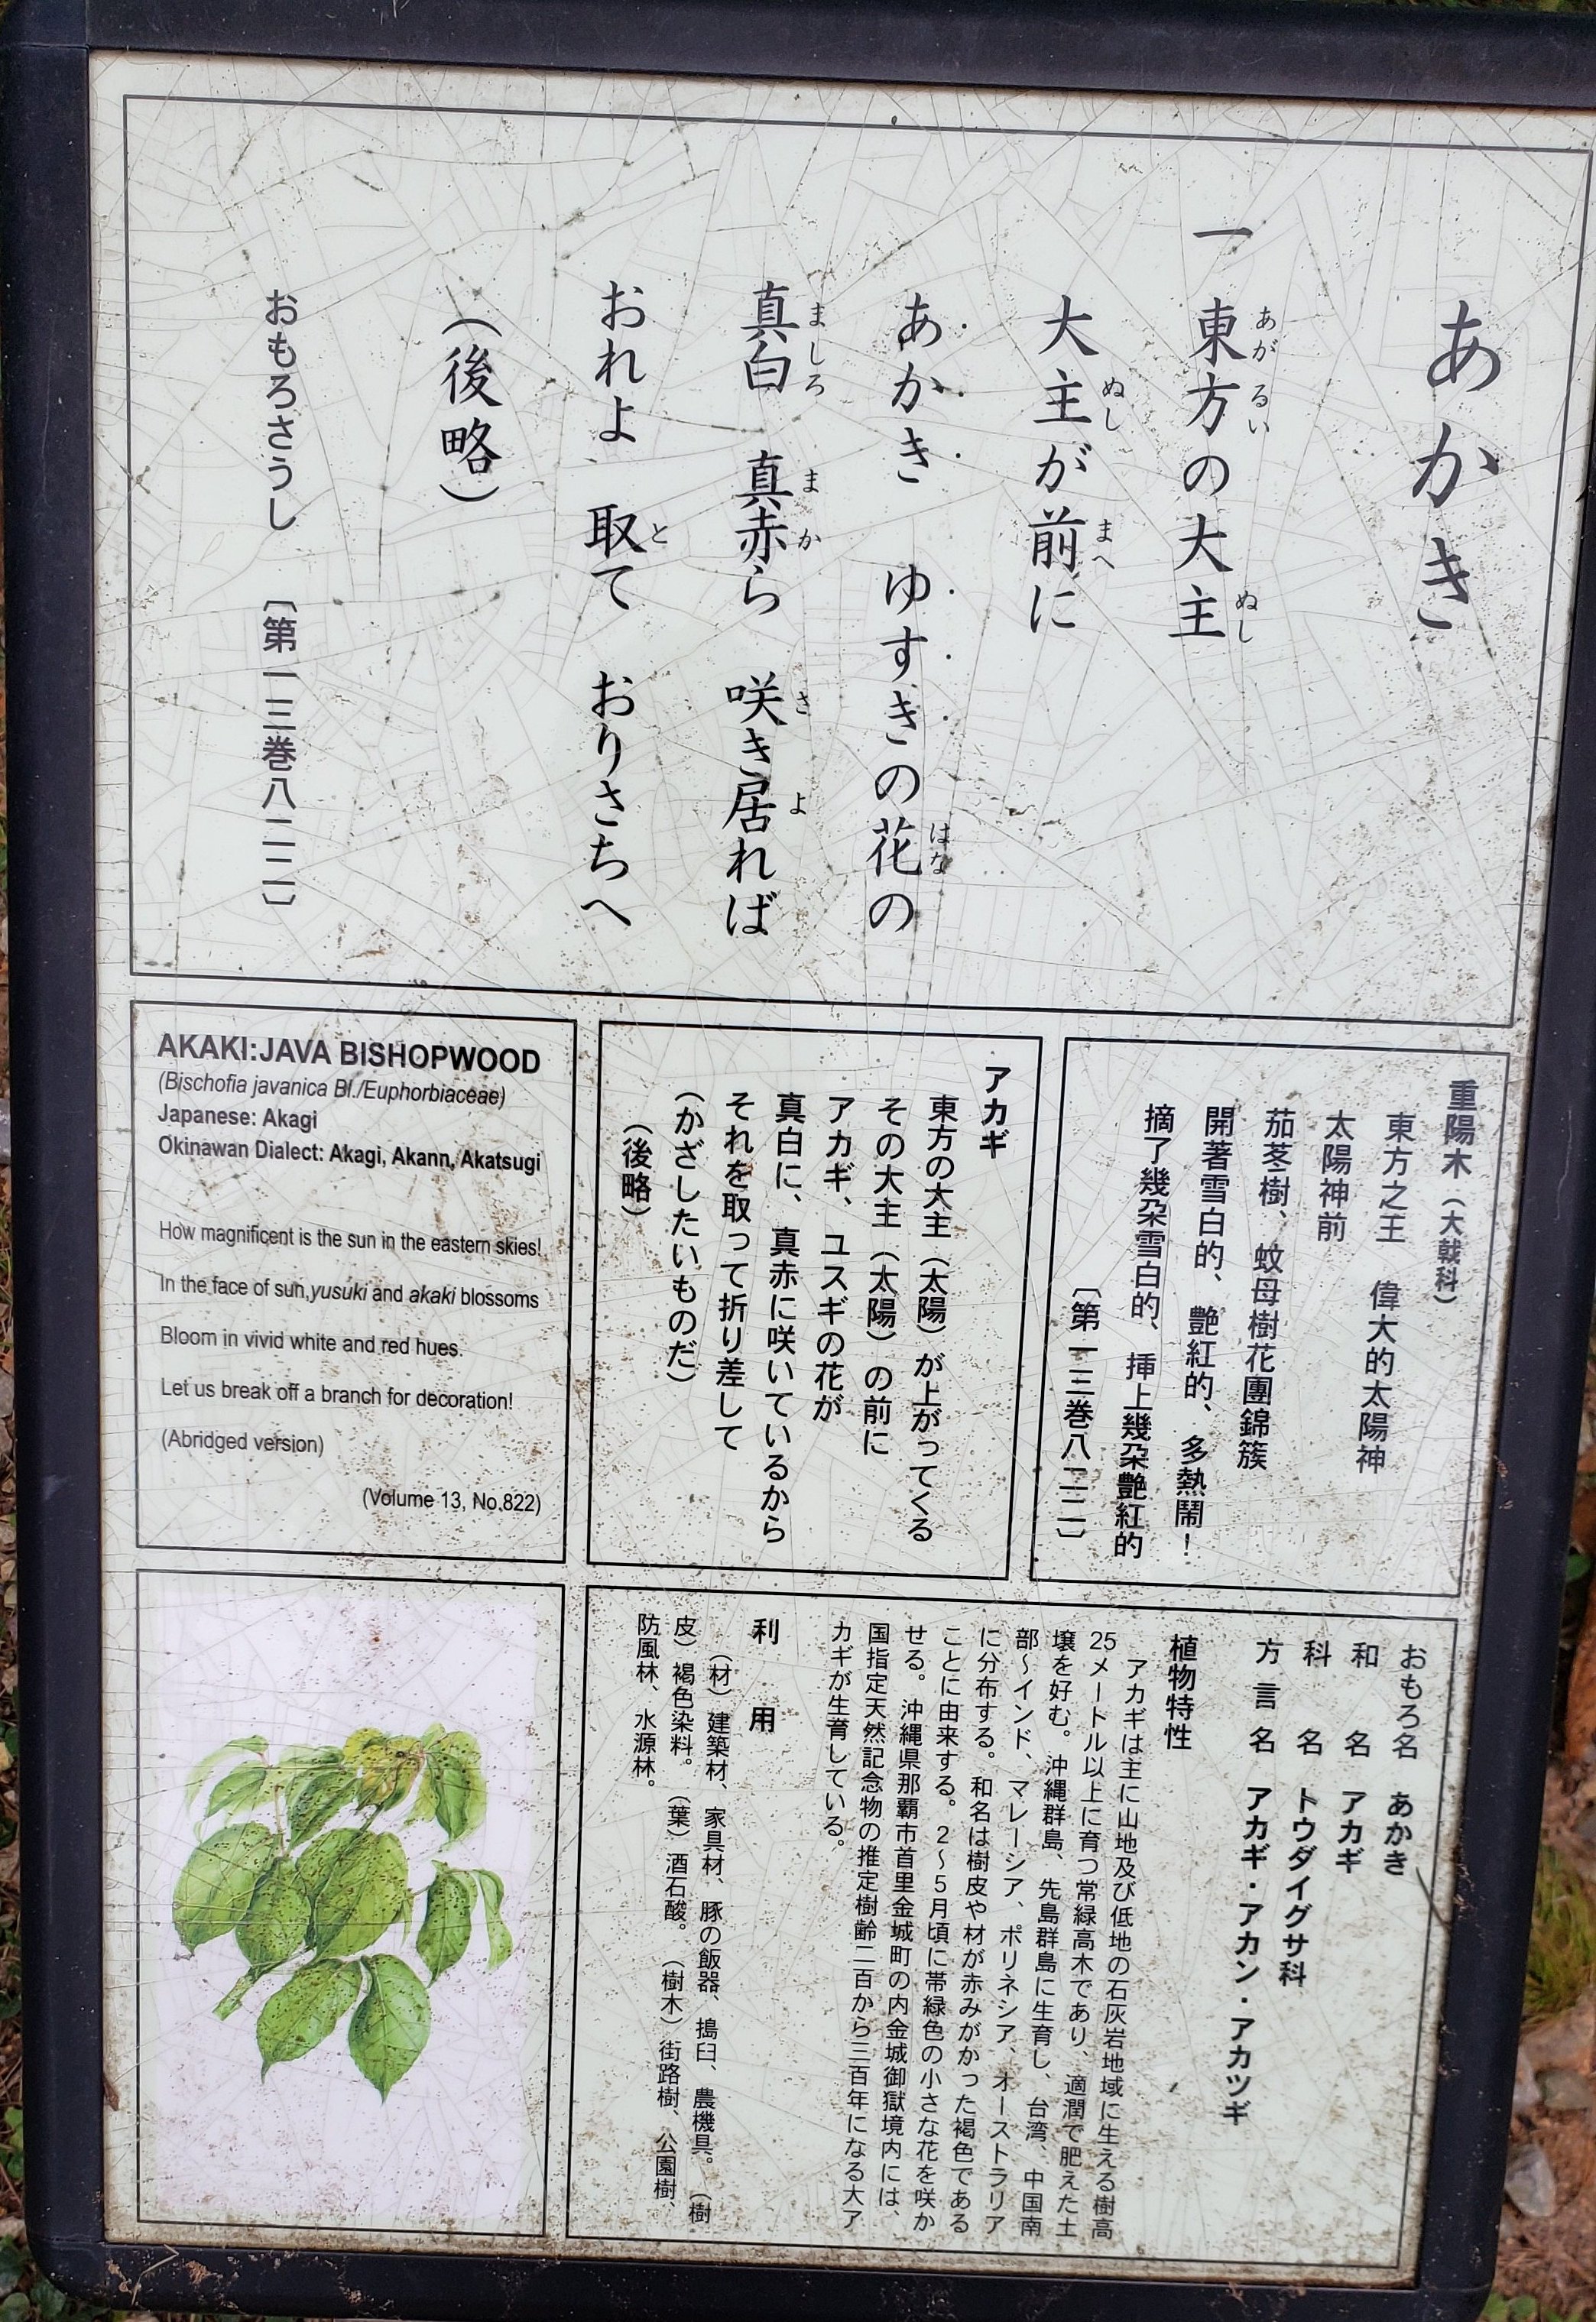 あかき
一 東方の大主
大主が前に
あかき ゆすきの花の
真白 真赤ら 咲き居れば
おれよ 取て おりさちへ
（後略）
おもろさうし 〔第一三巻八二二〕
あが るい ぬし
ぬし まへ
はな
ましろ まか さ よ
と
重陽木（大戟科）
東方之王 偉大的太陽神
太陽神前
茄苳樹、蚊母樹花團錦簇
開著雪白的、艷紅的、多熱鬧！
摘了幾朶雪白的、挿上幾朶艷紅的
〔第一三巻八二二〕
アカギ
東方の大主（太陽）が上がってくる
その大主（太陽）の前に
アカギ、ユスギの花が
真白に、真赤に咲いているから
それを取って折り差して
（かざしたいものだ）
（後略）
AKAKI:JAVA BISHOPWOOD
(Bischofia javanica Bl./Euphorbiaceae)
Japanese: Akagi
Okinawan Dialect: Akagi, Akann, Akatsugi
How magnificent is the sun in the eastern skies!
In the face of sun,yusuki and akaki blossoms
Bloom in vivid white and red hues.
Let us break off a branch for decoration!
(Abridged version)
(Volume 13, No.822)
おもろ名 あかき
和名 アカギ
科名 トウダイグサ科
方言名 アカギ・アカン・アカツギ
植物特性
アカギは主に山地及び低地の石灰岩地域に生える樹高
25メートル以上に育つ常緑高木であり、適潤で肥えた土
壌を好む。沖縄群島、先島群島に生育し、台湾、中国南
部～インド、マレーシア、ポリネシア、オーストラリア
に分布する。和名は樹皮や材が赤みがかった褐色である
ことに由来する。2～5月頃に帯緑色の小さな花を咲か
せる。沖縄県那覇市首里金城町の内金城御獄境内には、
国指定天然記念物の推定樹齢二百から三百年になる大ア
カギが生育している。
利用
（材）建築材、家具材、豚の飯器、搗臼、農機具。（樹
皮）褐色染料。（葉）酒石酸。（樹木）街路樹、公園樹、
防風林、水源林。